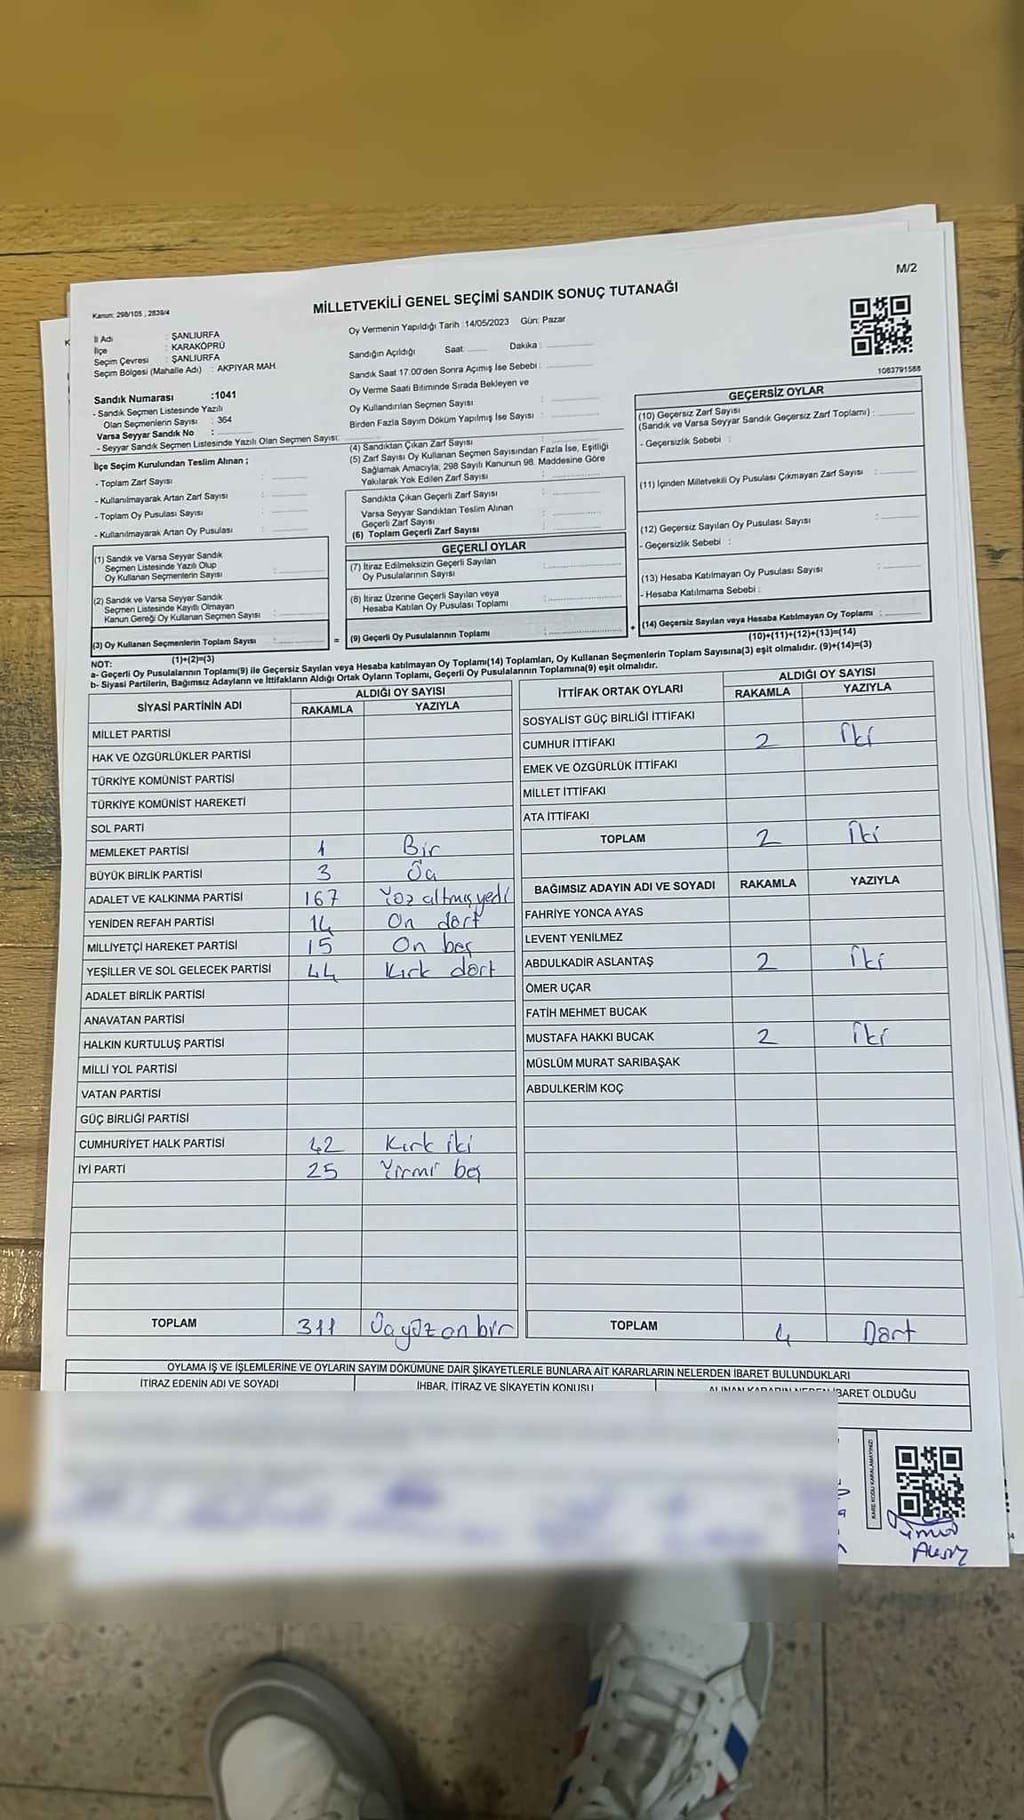 M/2
Kanun: 298/105 , 2839/4
MİLLETVEKİLİ GENEL SEÇİMİ SANDIK SONUÇ TUTANAĞI
İl Adı : ŞANLIURFA
İlçe : KARAKÖPRÜ
Seçim Çevresi : ŞANLIURFA
Seçim Bölgesi (Mahalle Adı) : AKPIYAR MAH
Oy Vermenin Yapıldığı Tarih :14/05/2023 Gün: Pazar
Sandığın Açıldığı Saat: Dakika :
Sandık Saat 17.00'den Sonra Açımış İse Sebebi :
Oy Verme Saati Bitiminde Sırada Bekleyen ve
Oy Kullandırılan Seçmen Sayısı :
Birden Fazla Sayım Döküm Yapılmış İse Sayısı :
1063791568
Sandık Numarası :1041
- Sandık Seçmen Listesinde Yazılı
Olan Seçmenlerin Sayısı : 364
Varsa Seyyar Sandık No :
- Seyyar Sandık Seçmen Listesinde Yazılı Olan Seçmen Sayısı:
İlçe Seçim Kurulundan Teslim Alınan ;
- Toplam Zarf Sayısı :
- Kullanılmayarak Artan Zarf Sayısı :
- Toplam Oy Pusulası Sayısı :
- Kullanılmayarak Artan Oy Pusulası :
(1) Sandık ve Varsa Seyyar Sandık
Seçmen Listesinde Yazılı Olup
Oy Kullanan Seçmenlerin Sayısı :
(2) Sandık ve Varsa Seyyar Sandık
Seçmen Listesinde Kayıtlı Olmayan
Kanun Gereği Oy Kullanan Seçmen Sayısı :
(3) Oy Kullanan Seçmenlerin Toplam Sayısı :
(1)+(2)=(3)
=
(4) Sandıktan Çıkan Zarf Sayısı :
(5) Zarf Sayısı Oy Kullanan Seçmen Sayısından Fazla İse, Eşitliği
Sağlamak Amacıyla, 298 Sayılı Kanunun 98. Maddesine Göre
Yakılarak Yok Edilen Zarf Sayısı :
Sandıkta Çıkan Geçerli Zarf Sayısı :
Varsa Seyyar Sandıktan Teslim Alınan
Geçerli Zarf Sayısı :
(6) Toplam Geçerli Zarf Sayısı :
GEÇERLİ OYLAR
(7) İtiraz Edilmeksizin Geçerli Sayılan
Oy Pusulalarının Sayısı :
(8) İtiraz Üzerine Geçerli Sayılan veya
Hesaba Katılan Oy Pusulası Toplamı :
(9) Geçerli Oy Pusulalarının Toplamı :
+
GEÇERSİZ OYLAR
(10) Geçersiz Zarf Sayısı
(Sandık ve Varsa Seyyar Sandık Geçersiz Zarf Toplamı) :
- Geçersizlik Sebebi :
(11) İçinden Milletvekili Oy Pusulası Çıkmayan Zarf Sayısı :
(12) Geçersiz Sayılan Oy Pusulası Sayısı :
- Geçersizlik Sebebi :
(13) Hesaba Katılmayan Oy Pusulası Sayısı :
- Hesaba Katılmama Sebebi :
(14) Geçersiz Sayılan veya Hesaba Katılmayan Oy Toplamı :
(10)+(11)+(12)+(13)=(14)
NOT:
a- Geçerli Oy Pusulalarının Toplamı(9) ile Geçersiz Sayılan veya Hesaba katılmayan Oy Toplamı(14) Toplamları, Oy Kullanan Seçmenlerin Toplam Sayısına(3) eşit olmalıdır. (9)+(14)=(3)
b- Siyasi Partilerin, Bağımsız Adayların ve İttifakların Aldığı Ortak Oyların Toplamı, Geçerli Oy Pusulalarının Toplamına(9) eşit olmalıdır.
SİYASİ PARTİNİN ADI ALDIĞI OY SAYISI
RAKAMLA YAZIYLA
MİLLET PARTİSİ
HAK VE ÖZGÜRLÜKLER PARTİSİ
TÜRKİYE KOMÜNİST PARTİSİ
TÜRKİYE KOMÜNİST HAREKETİ
SOL PARTİ
MEMLEKET PARTİSİ 1 Bir
BÜYÜK BİRLİK PARTİSİ 3 Üç
ADALET VE KALKINMA PARTİSİ 167 Yüz altmış yedi
YENİDEN REFAH PARTİSİ 14 On dört
MİLLİYETÇİ HAREKET PARTİSİ 15 On beş
YEŞİLLER VE SOL GELECEK PARTİSİ 44 Kırk dört
ADALET BİRLİK PARTİSİ
ANAVATAN PARTİSİ
HALKIN KURTULUŞ PARTİSİ
MİLLİ YOL PARTİSİ
VATAN PARTİSİ
GÜÇ BİRLİĞİ PARTİSİ
CUMHURİYET HALK PARTİSİ 42 Kırk iki
İYİ PARTİ 25 Yirmi beş
TOPLAM 311 Üçyüz on bir
İTTİFAK ORTAK OYLARI ALDIĞI OY SAYISI
RAKAMLA YAZIYLA
SOSYALİST GÜÇ BİRLİĞİ İTTİFAKI
CUMHUR İTTİFAKI 2 İki
EMEK VE ÖZGÜRLÜK İTTİFAKI
MİLLET İTTİFAKI
ATA İTTİFAKI
TOPLAM 2 İki
BAĞIMSIZ ADAYIN ADI VE SOYADI RAKAMLA YAZIYLA
FAHRİYE YONCA AYAS
LEVENT YENİLMEZ
ABDULKADİR ASLANTAŞ 2 İki
ÖMER UÇAR
FATİH MEHMET BUCAK
MUSTAFA HAKKI BUCAK 2 İki
MÜSLÜM MURAT SARIBAŞAK
ABDULKERİM KOÇ
TOPLAM 4 Dört
OYLAMA İŞ VE İŞLEMLERİNE VE OYLARIN SAYIM DÖKÜMÜNE DAİR ŞİKAYETLERLE BUNLARA AİT KARARLARIN NELERDEN İBARET BULUNDUKLARI
İTİRAZ EDENİN ADI VE SOYADI İHBAR, İTİRAZ VE ŞİKAYETİN KONUSU ALINAN KARARIN NEDEN İBARET OLDUĞU
KARE KODU KARALAMAYINIZ!